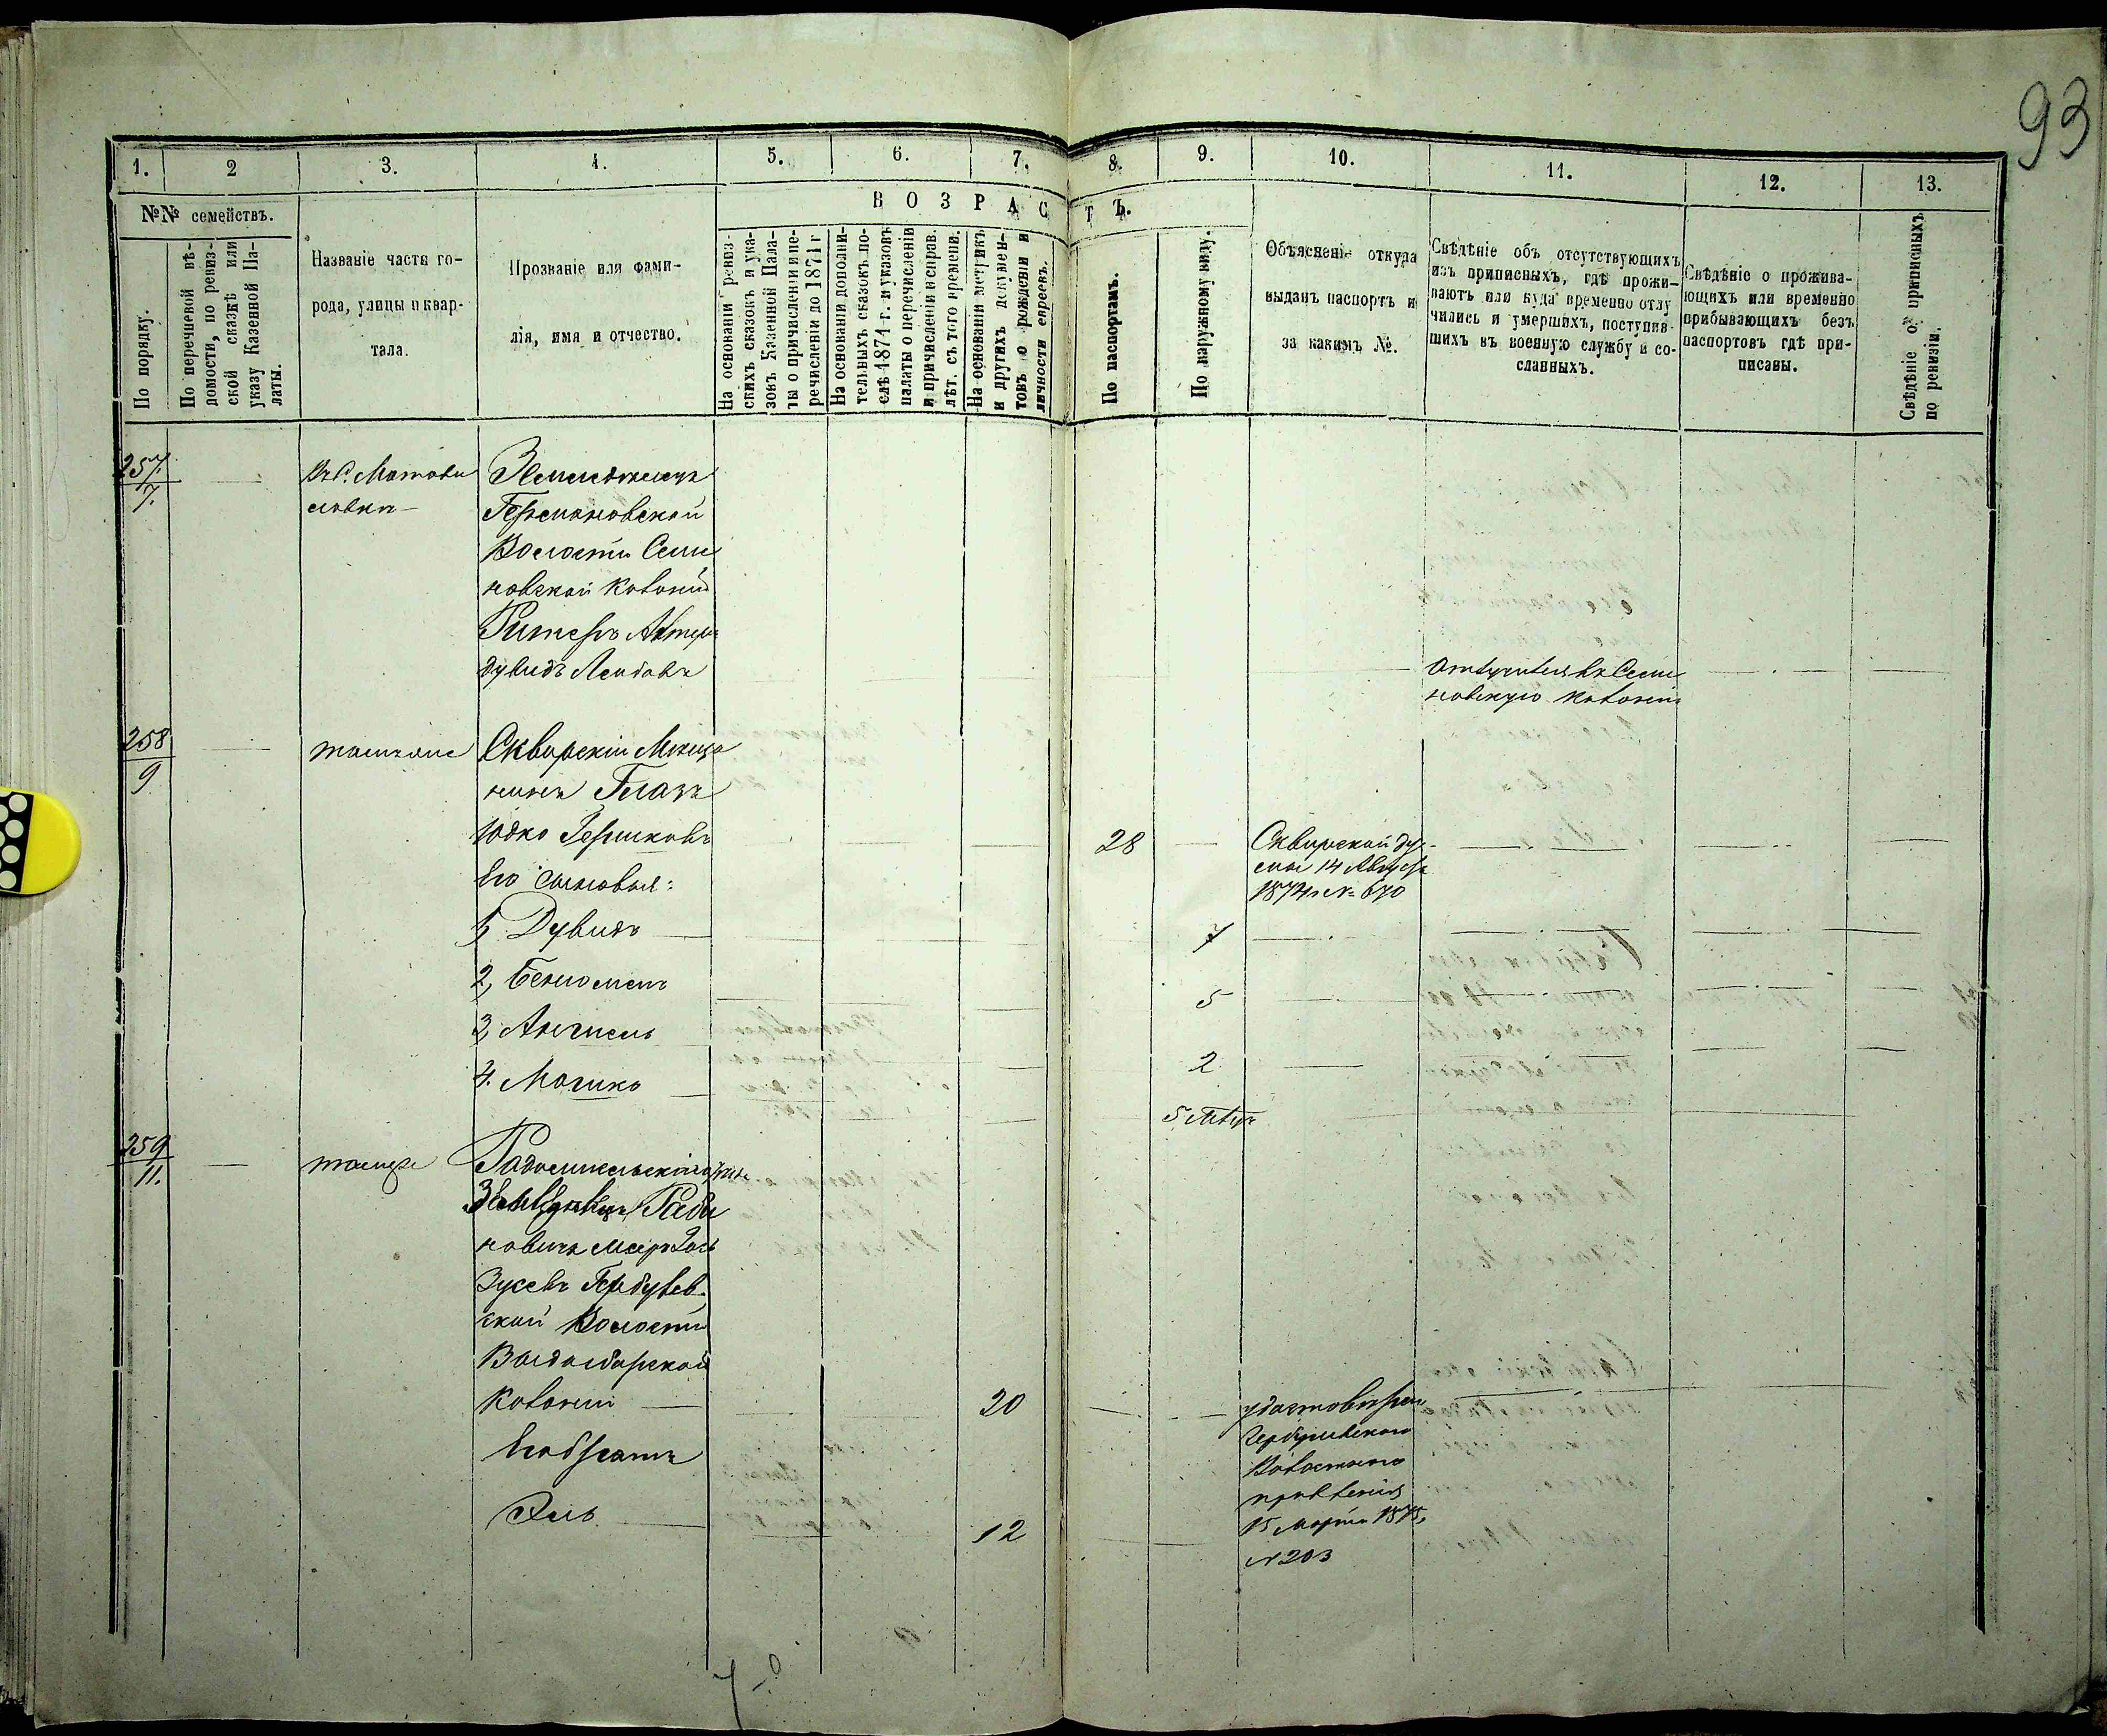 93
1. 2 3. 4. 5. 6. 7. 8. 9. 10. 11. 12. 13.
№№ семействъ.
По порядку.
По перечневой вѣ-
домости, по ревиз-
ской сказкѣ или
указу Казенной Па-
латы.
Названіе части го-
рода, улицы и квар-
тала.
Прозваніе или фами-
лія, имя и отчество.
ВОЗРАСТЪ.
На основаніи ревиз-
скихъ сказокъ и ука-
зовъ Казенной Пала-
ты о причисленіи и пе-
речисленіи до 1871 г
На основаніи дополни-
тельныхъ сказокъ по-
слѣ 1871 г. и указовъ
палаты о перечисленіи
и причисленіи и справ.
лѣт. съ того времени.
На основаніи метрикъ
и другихъ докумен-
товъ о рожденіи и
личности евреевъ.
По паспортамъ.
По наружному виду.
Объясненіе откуда
выданъ паспортъ и
за какимъ №.
Свѣдѣніе объ отсутствующихъ
изъ приписныхъ, гдѣ прожи-
ваютъ или куда временно отлу
чились и умершихъ, поступив-
шихъ въ военную службу и со-
сланныхъ.
Свѣдѣніе о прожива-
ющихъ или временно
прибывающихъ безъ
паспортовъ гдѣ при-
писаны.
Свѣдѣніе о приписныхъ
по ревизіи.
257/7.
Въ с. Мотови
ловки
Земледѣлецъ
Германовской
Волости Сели
новской Колоніи
Дувидъ Лейбовъ
Отлучился въ Сели
новскую колонію
258/9
тоже
Сквирскій Мѣща
нинъ Глазъ
Юдко Гершковъ
28
Сквирской ду-
мой 14 Августа
1874 г № 670
Его сыновья:
1, Дувидъ 7
2, Беніоменъ 5
3, Анчиель 2
4. Мошко 5 мѣц
259/11.
тоже
Радомысльскій
Раби
новичъ
Зусевъ
ской Волости
Колоніи 20
удостовѣрен
Волостного
правленія
15 Марта 1875,
№ 203
Его братъ
Эль 12